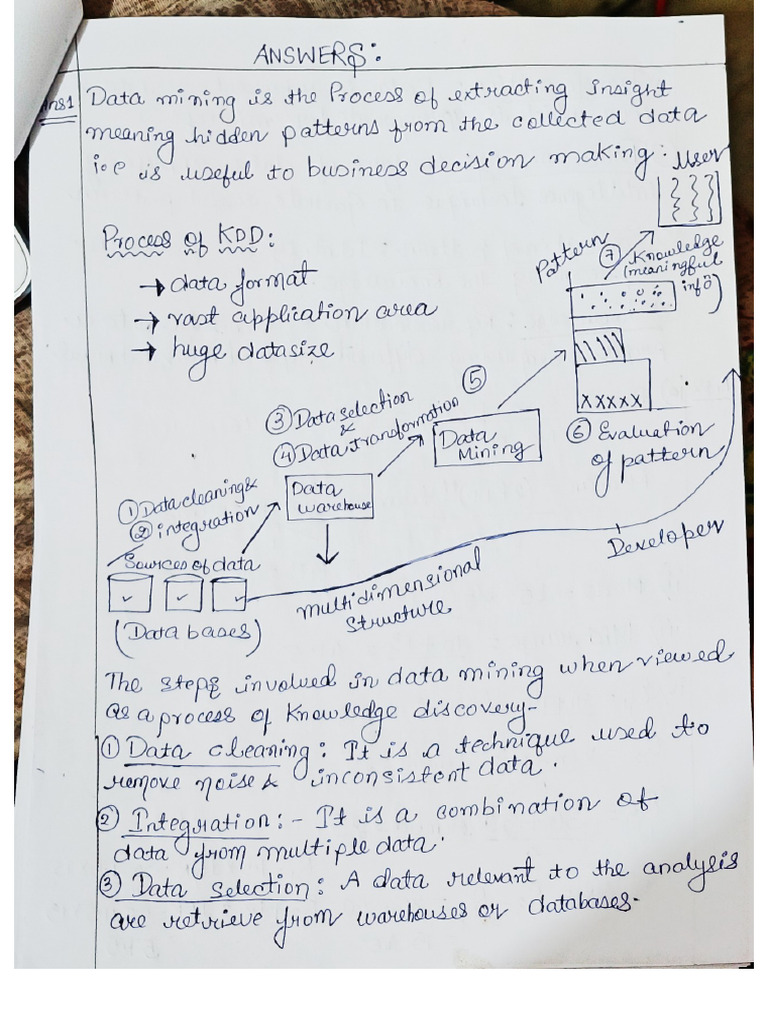 ANSWERS:
Ans1 Data mining is the Process of extracting insight
meaning hidden patterns from the collected data
i.e is useful to business decision making.
User
Process of KDD:
→ data format
→ vast application area
→ huge datasize
Pattern
⑦ Knowledge
(meaningful
info)
③ Data selection
&
④ Data transformation
⑤
xxxxx
Data
Mining
⑥ Evaluation
of pattern
① Data cleaning &
② integration
Data
warehouse
Sources of data
Developer
(Data bases)
multidimensional
structure
The steps involved in data mining when viewed
as a process of knowledge discovery-
① Data cleaning: It is a technique used to
remove noise & inconsistent data.
② Integration:- It is a combination of
data from multiple data.
③ Data selection: A data relevant to the analysis
are retrieve from warehouses or databases.